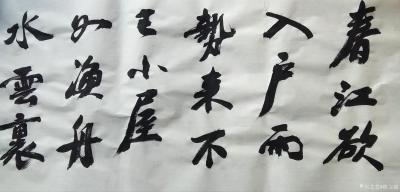 春江欲
入户雨
勢来不
已小屋
如漁舟
水雲裏